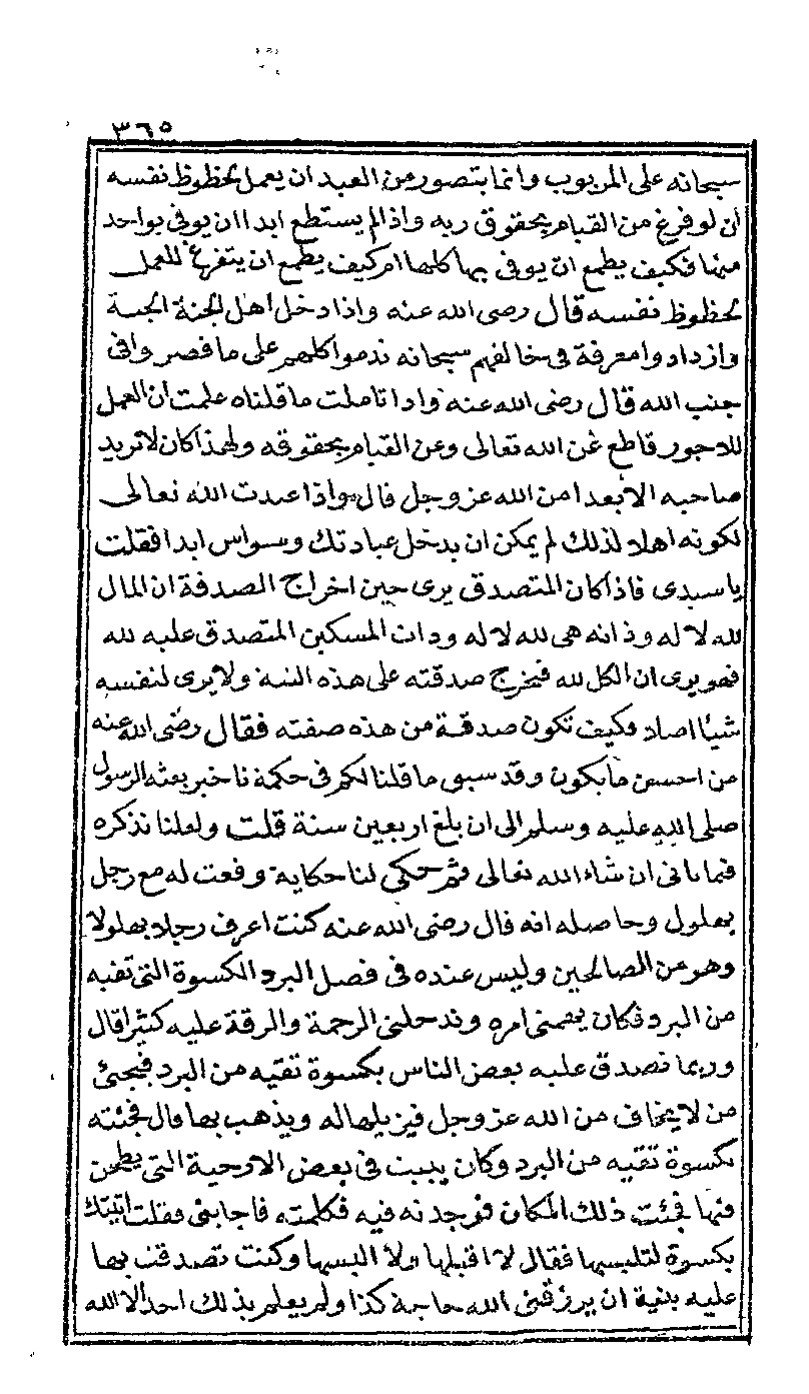 ٣٦٥
سبحانه على المربوب وانما يتصور من العبد ان يعمل لحظوظ نفسه
ان لو فرغ من القيام بحقوق ربه واذا لم يستطع ابدا ان يوفى بواحد
منها فكيف يطمع ان يوفى بها كلها ام كيف يطمع ان يتفرغ للعمل
لحظوظ نفسه قال رضى الله عنه واذا دخل أهل الجنة الجنة
وازدادوا معرفة فى خالقهم سبحانه ندموا كلهم على ما قصروا فى
جنب الله قال رضى الله عنه واذا تاملت ما قلناه علمت ان العمل
للاجور قاطع عن الله تعالى وعن القيام بحقوقه ولهذا كان لا تريد
صاحبه الا بعدا من الله عز وجل قال واذا عبدت الله تعالى
لكونه اهلا لذلك لم يمكن ان يدخل عبادتك وسواس ابدا فقلت
يا سيدى فاذا كان المتصدق يرى حين اخراج الصدقة ان المال
لله لا له وذاته هى لله لا له وذات المسكين المتصدق عليه لله
فهو يرى ان الكل لله فيخرج صدقته على هذه النية ولا يرى لنفسه
شيأ اصلا وكيف تكون صدقة من هذه صفته فقال رضى الله عنه
من احسن ما يكون وقد سبق ما قلنا لكم فى حكمة تاخير بعثه الرسول
صلى الله عليه وسلم الى ان بلغ اربعين سنة قلت ولعلنا نذكره
فيما ياتى ان شاء الله تعالى ثم حكى لنا حكاية وقعت له مع رجل
بهلول وحاصله انه قال رضى الله عنه كنت اعرف رجلا بهلولا
وهو من الصالحين وليس عنده فى فصل البرد الكسوة التى تقيه
من البرد فكان يهمنى امره وتدخلنى الرحمة والرقة عليه كثيرا قال
وربما تصدق عليه بعض الناس بكسوة تقيه من البرد فيجئ
من لا يخاف من الله عز وجل فيزيلها له ويذهب بها قال فجئته
بكسوة تقيه من البرد وكان يبيت فى بعض الارحية التى يطحن
فيها فجئت ذلك المكان فوجدته فيه فكلمته فاجابنى فقلت اتيتك
بكسوة لتلبسها فقال لا اقبلها ولا البسها وكنت تصدقت بها
عليه بنية ان يرزقنى الله حاجة كذا ولم يعلم بذلك احد الا الله